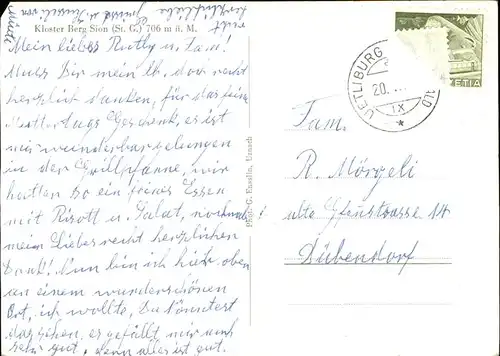 recht
herzliche
Grüsse u. Küssli von
Kloster Berg Sion (St. G.) 706 m ü. M.
Mein liebes Ruthy u. Fam!
Muss Dir mein lb. doch recht
herzlich danken, für das feine
Muttertags Geschenk, es ist
mir wunderbar gelungen
in der Grillpfanne, wir
hatten so ein feines Essen
mit Risott u. Salat, nochmals
mein Liebes recht herzlichen
Dank! Nun bin ich hier oben
an einem wunderschönen
Ort, ich wollte, Du könntest
da sehen, es gefällt mir auch
sehr gut, denn alles ist gut.
Phot. G. Eusslin, Uznach
UETLIBURG
20.
IX
HELVETIA
Fam.
R. Mörgeli
alte Gfennstrasse 14
Dübendorf